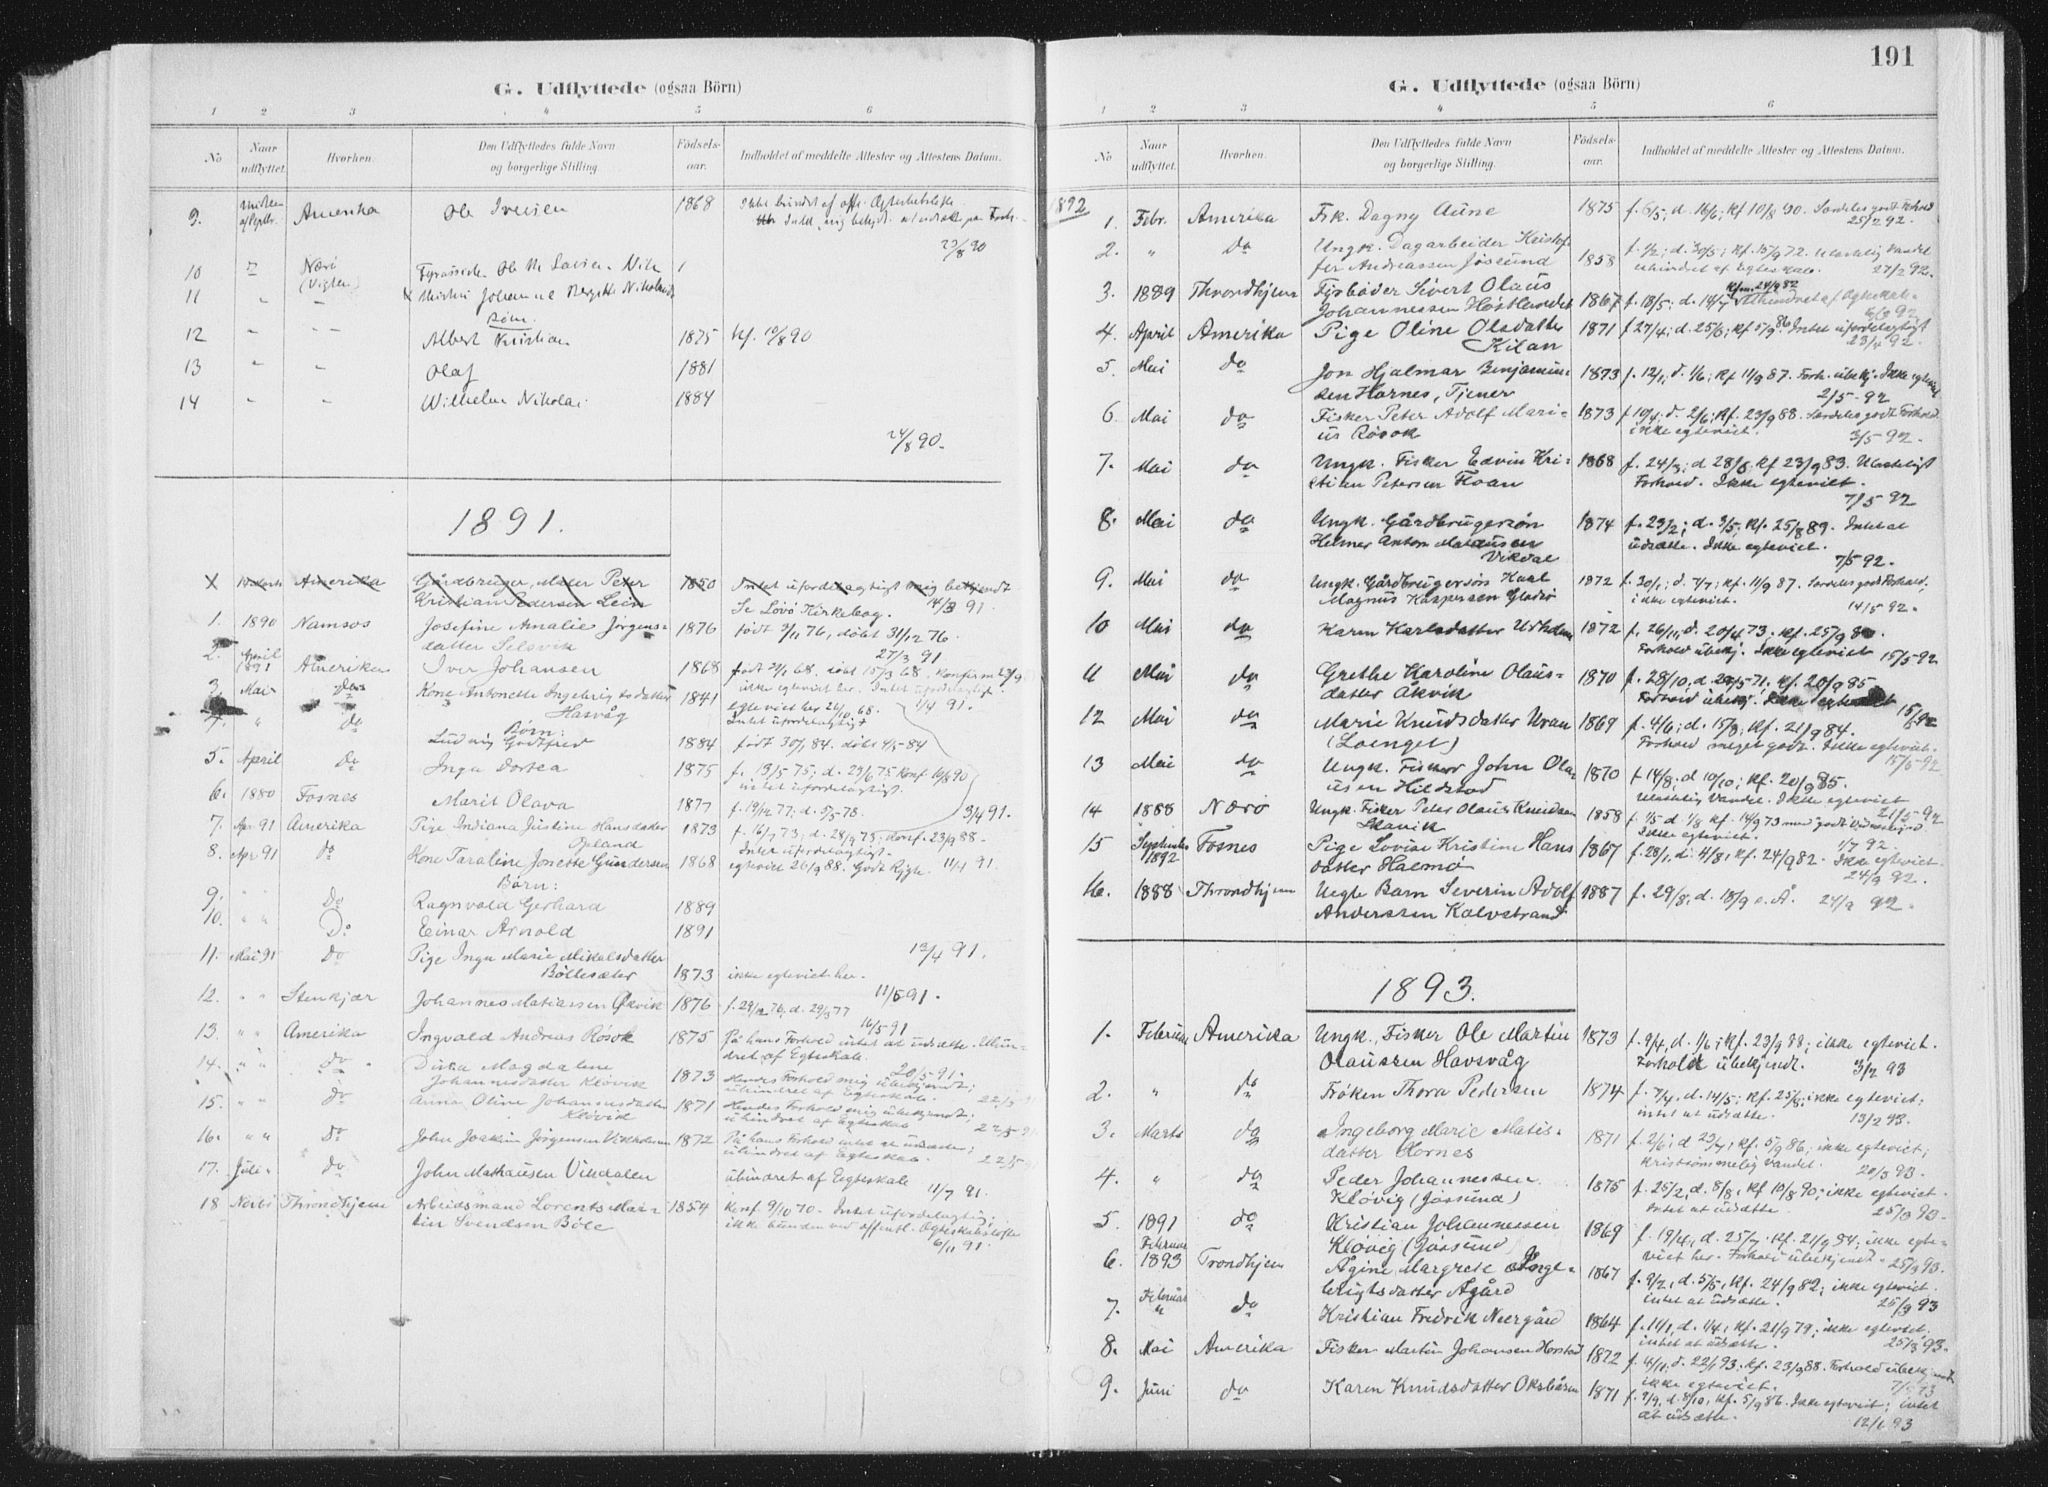 G. Udflyttede (ogsaa Börn)
1 2 3 4 5 6
No Naar udflyttet. Hvorhen. Den Udflyttedes fulde Navn og borgerlige Stilling. Födsels-aar. Indholdet af meddelte Attester og Attestens Datum.
9. Amerika Ole Iversen 1868
23/8 90
10 Nærö
(Vigten)
11 " Johanne Bergitte
Börn.
12 " " Albert Kristian 1875 kf. 10/8 90
13 " " Olaf 1881
14 " " Wilhelm Nikolai 1884
24/8 90.
1891.
X Amerika Gårdbruger, Peter 1850 Intet ufordelagtigt mig bekjendt
Kristian Pedersen Lein Se Kirkebog. 14/3 91.
1. 1890 Namsos Josefine Amalie Jörgens- 1876 født 3/11 76, døbt 31/12 76.
datter Selsvik 27/3 91
2. April
1891 Amerika Iver Johansen 1868
ikke egteviet her. Intet ufordelagtigt.
3. Mai do Kone Antonette Ingebrigtsdatter 1841 egteviet her
Hasvåg Intet ufordelagtigt 1/4 91.
4. " do Börn:
Ludvig Godtfred 1884
5. April do Inga Dortea 1875 f. 13/5 75; d. 29/6 75 Konf 10/8 90
intet ufordelagtigt.
6. 1880 Fosnes Marit Olava 1877 f. 19/12 77; d. 5/5 78. 3/4 91.
7. Apr 91 Amerika Pige Indiana Justine Hansdatter 1873 f. 16/7 73; d. 28/9 73; Konf. 23/9 88.
Opland Intet ufordelagtigt.
8. Apr 91 do Kone Taraline Jonette Gundersen 1868 egteviet 26/9 88. Godt Rygte. 11/4 91.
Börn:
9. " " Do Ragnvald Gerhard 1889
10. " " Do Einar Arnold 1891
12/4 91.
11. Mai 91 do Pige Inga Marie Mikalsdatter
Böllesæter 1873 ikke egteviet her.
11/5 91.
12. " " Stenkjær Johannes Matiassen Økvik 1876 f. 29/12 76, d. 29/3 77
16/5 91
13. " " Amerika Ingvald Andreas Rösok 1875 På hans Forhold intet at udsætte. Uhin-
dret af Egteskab.
20/5 91.
14. " " do Dina Magdalene
Johannesdatter Klövik 1873 Hendes Forhold mig ubekjendt;
uhindret af Egteskab. 22/5 91
15. " " do Anna Oline Johannesdatter 1871 Hendes Forhold mig ubekjendt.
Klövik uhindret af Egteskab 22/5 91
16. " " do John Joakim Jörgensen 1872 På hans Forhold intet at udsætte;
uhindret af Egteskab. 22/5 91
17. Juli do John Mathausen Vikdalen uhindret af Egteskab
11/7 91.
18 Throndhjem Arbeidsmand Lorents Mar- 1854 Konf 9/10 70. Intet ufordelagtig;
tin Svendsen Böle ikke bunden ved offentl. Egteskabslöfte
6/11 91.
191
G. Udflyttede (ogsaa Börn)
1 2 3 4 5 6
No Naar udflyttet. Hvorhen. Den Udflyttedes fulde Navn og borgerlige Stilling. Födsels-aar. Indholdet af meddelte Attester og Attestens Datum.
1892
1. Febr. Amerika Frk. Dagny Aune 1875 f. 6/5; d. 16/6; Kf 10/8 90. Særdeles godt Forhold
25/2 92.
2. " do Ungk. Dagarbeider Kristof-
fer Andreassen Jösund 1858 ulastelig Vandel
uhindret af Egteskab. 27/2 92.
3. 1889 Throndhjem Fyrböder Sivert Olaus
Johannessen Höstlandet 1867 Uhindret af Egteskab.
6/3 92
4. April Amerika Pige Oline Olsdatter 1871 f 27/4; d. 25/6; kf 5/9 86. Intet ufordelagtigt
Kilan 23/4 92.
5. Mai do Jon Hjalmar Benjamin- 1873 f. 12/1; d. 1/6; kf 11/9 87. Forh. ubekj. Ikke egteviet
sen Hornes, Tjener 2/5 92
6. Mai do Fisker Peter Adolf Mari- 1873 f 10/4; d. 2/6; kf. 23/9 88. Særdeles godt Forhold.
us Rösok ikke egteviet. 3/5 92.
7. Mai do Ungk. Fisker Edvin Kri- 1868 f. 24/3; d 28/6; kf 23/9 83. Ulasteligt
stian Petersen Hoan Forhold. Ikke egteviet.
7/5 92
8. Mai do Ungk. Gårdbrugersön 1874 f. 23/2; d. 3/5; kf. 25/8 89. Intet at
Helmer Anton Matausen udsætte. Ikke egteviet.
Vikdal 7/5 92.
9. Mai do Ungk. Gårdbrugersön Karl 1872 f. 30/1; d. 7/7; kf. 11/9 87. Særdeles godt Forhold,
Magnus Kaspersen Gladsö ikke egteviet. 14/5 92.
10 Mai do Karen Karlsdatter Urholm 1872 f. 26/11, d. 20/4 73; kf. 25/9 8
Forhold ubekj. Ikke egteviet 15/5 92
11 Mai do Grethe Karoline Olaus- 1870 f. 28/10, d. 29/5 71, kf. 20/9 85.
datter Økvik Forhold ubekj. Ikke egteviet
15/5 92
12 Mai do Marie Knudsdatter Uran 1869 f. 4/6; d. 15/8; kf. 21/9 84.
Forhold meget godt. Ikke egteviet.
15/5 92
13 Mai do Ungk. Fisker John Ola-
usen Hildstad 1870 f 14/8; d 10/10; kf. 20/9 85.
Ulastelig Vandel. Ikke egteviet
21/5 92
14 1888 Nærö Ungk. Fisker Peter Olaus Knudsen 1858 f. 1/5 d. 1/8 kf. 14/9 73 med godt Vidnesbyrd
Skavik Ikke egteviet. 1/7 92.
15 September
1892 Fosnes Pige Lovise Kristine Hans 1867 f. 28/1, d. 4/8; kf. 24/9 82. Ikke egteviet.
datter Halmö 24/9 92.
16. 1888 Throndhjem Uegte Barn Severin Adolf 1887 f. 29/8; d. 18/9 s. Å. 24/9 92.
Anderssen Kalvstrand
1893.
1. Februar Amerika Ungk. Fisker Ole Martin 1873 f. 9/4, d. 1/6; kf. 23/9 88; ikke egteviet.
Olaussen Havsvåg Forhold ubekjendt. 3/2 93
2. " do Fröken Thora Pedersen 1874 f. 7/4, d. 14/5; kf. 25/8; ikke egteviet;
intet at udsætte. 13/2 93.
3. Marts do Ingeborg Marie Matis- 1871 f. 2/6; d 23/7; kf. 5/9 86; ikke egteviet;
datter Hornes kristsömmelig Vandel. 20/3 93.
4. " do Peder Johannessen 1875 f. 25/2, d. 8/8; kf 10/8 90; ikke egteviet.
Klövig (Jösund) Intet at udsætte. 25/3 93.
5. 1891 do Kristian Johannessen 1869 f. 19/4; d. 25/7. kf. 21/9 84; ikke egte-
Klövig (Jösund) viet her. Forhold ubekjendt. 25/3 93.
6. Februar
1893 Trondhjem Agine Margrete Inge- 1867 f. 9/2, d. 5/5, kf. 24/9 82; ikke egteviet.
brigtsdatter Ågård intet at udsætte. 25/3 93
7. Februar
" do Kristian Fredrik Neergård 1864 f. 11/1, d. 1/4; kf. 21/9 79; ikke egteviet.
intet at udsætte. 25/3 93.
8. Mai Amerika Fisker Martin Johansen Horstad 1872 f. 4/11; d. 22/1 93; kf. 23/9 88. Forhold ubekjendt
ikke egteviet. 7/5 93
9. Juni do Karen Knudsdatter Oksbåsen 1871 f. 7/9, d. 8/10, kf. 5/9 86. Ikke egteviet; intet
at udsætte. 12/6 93